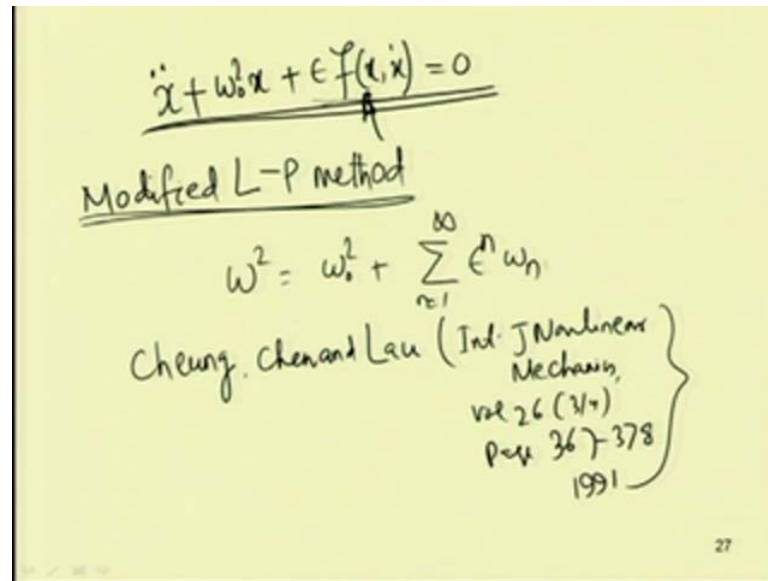 ẍ + ω₀²x + ϵ f(x, ẋ) = 0
Modified L-P method
ω² = ω₀² + ∑ₙ₌₁^∞ ϵⁿ ωₙ
Cheung, Chen and Lau (Int. J Nonlinear
Mechanics,
vol 26 (3/4)
Page 367-378
1991
27